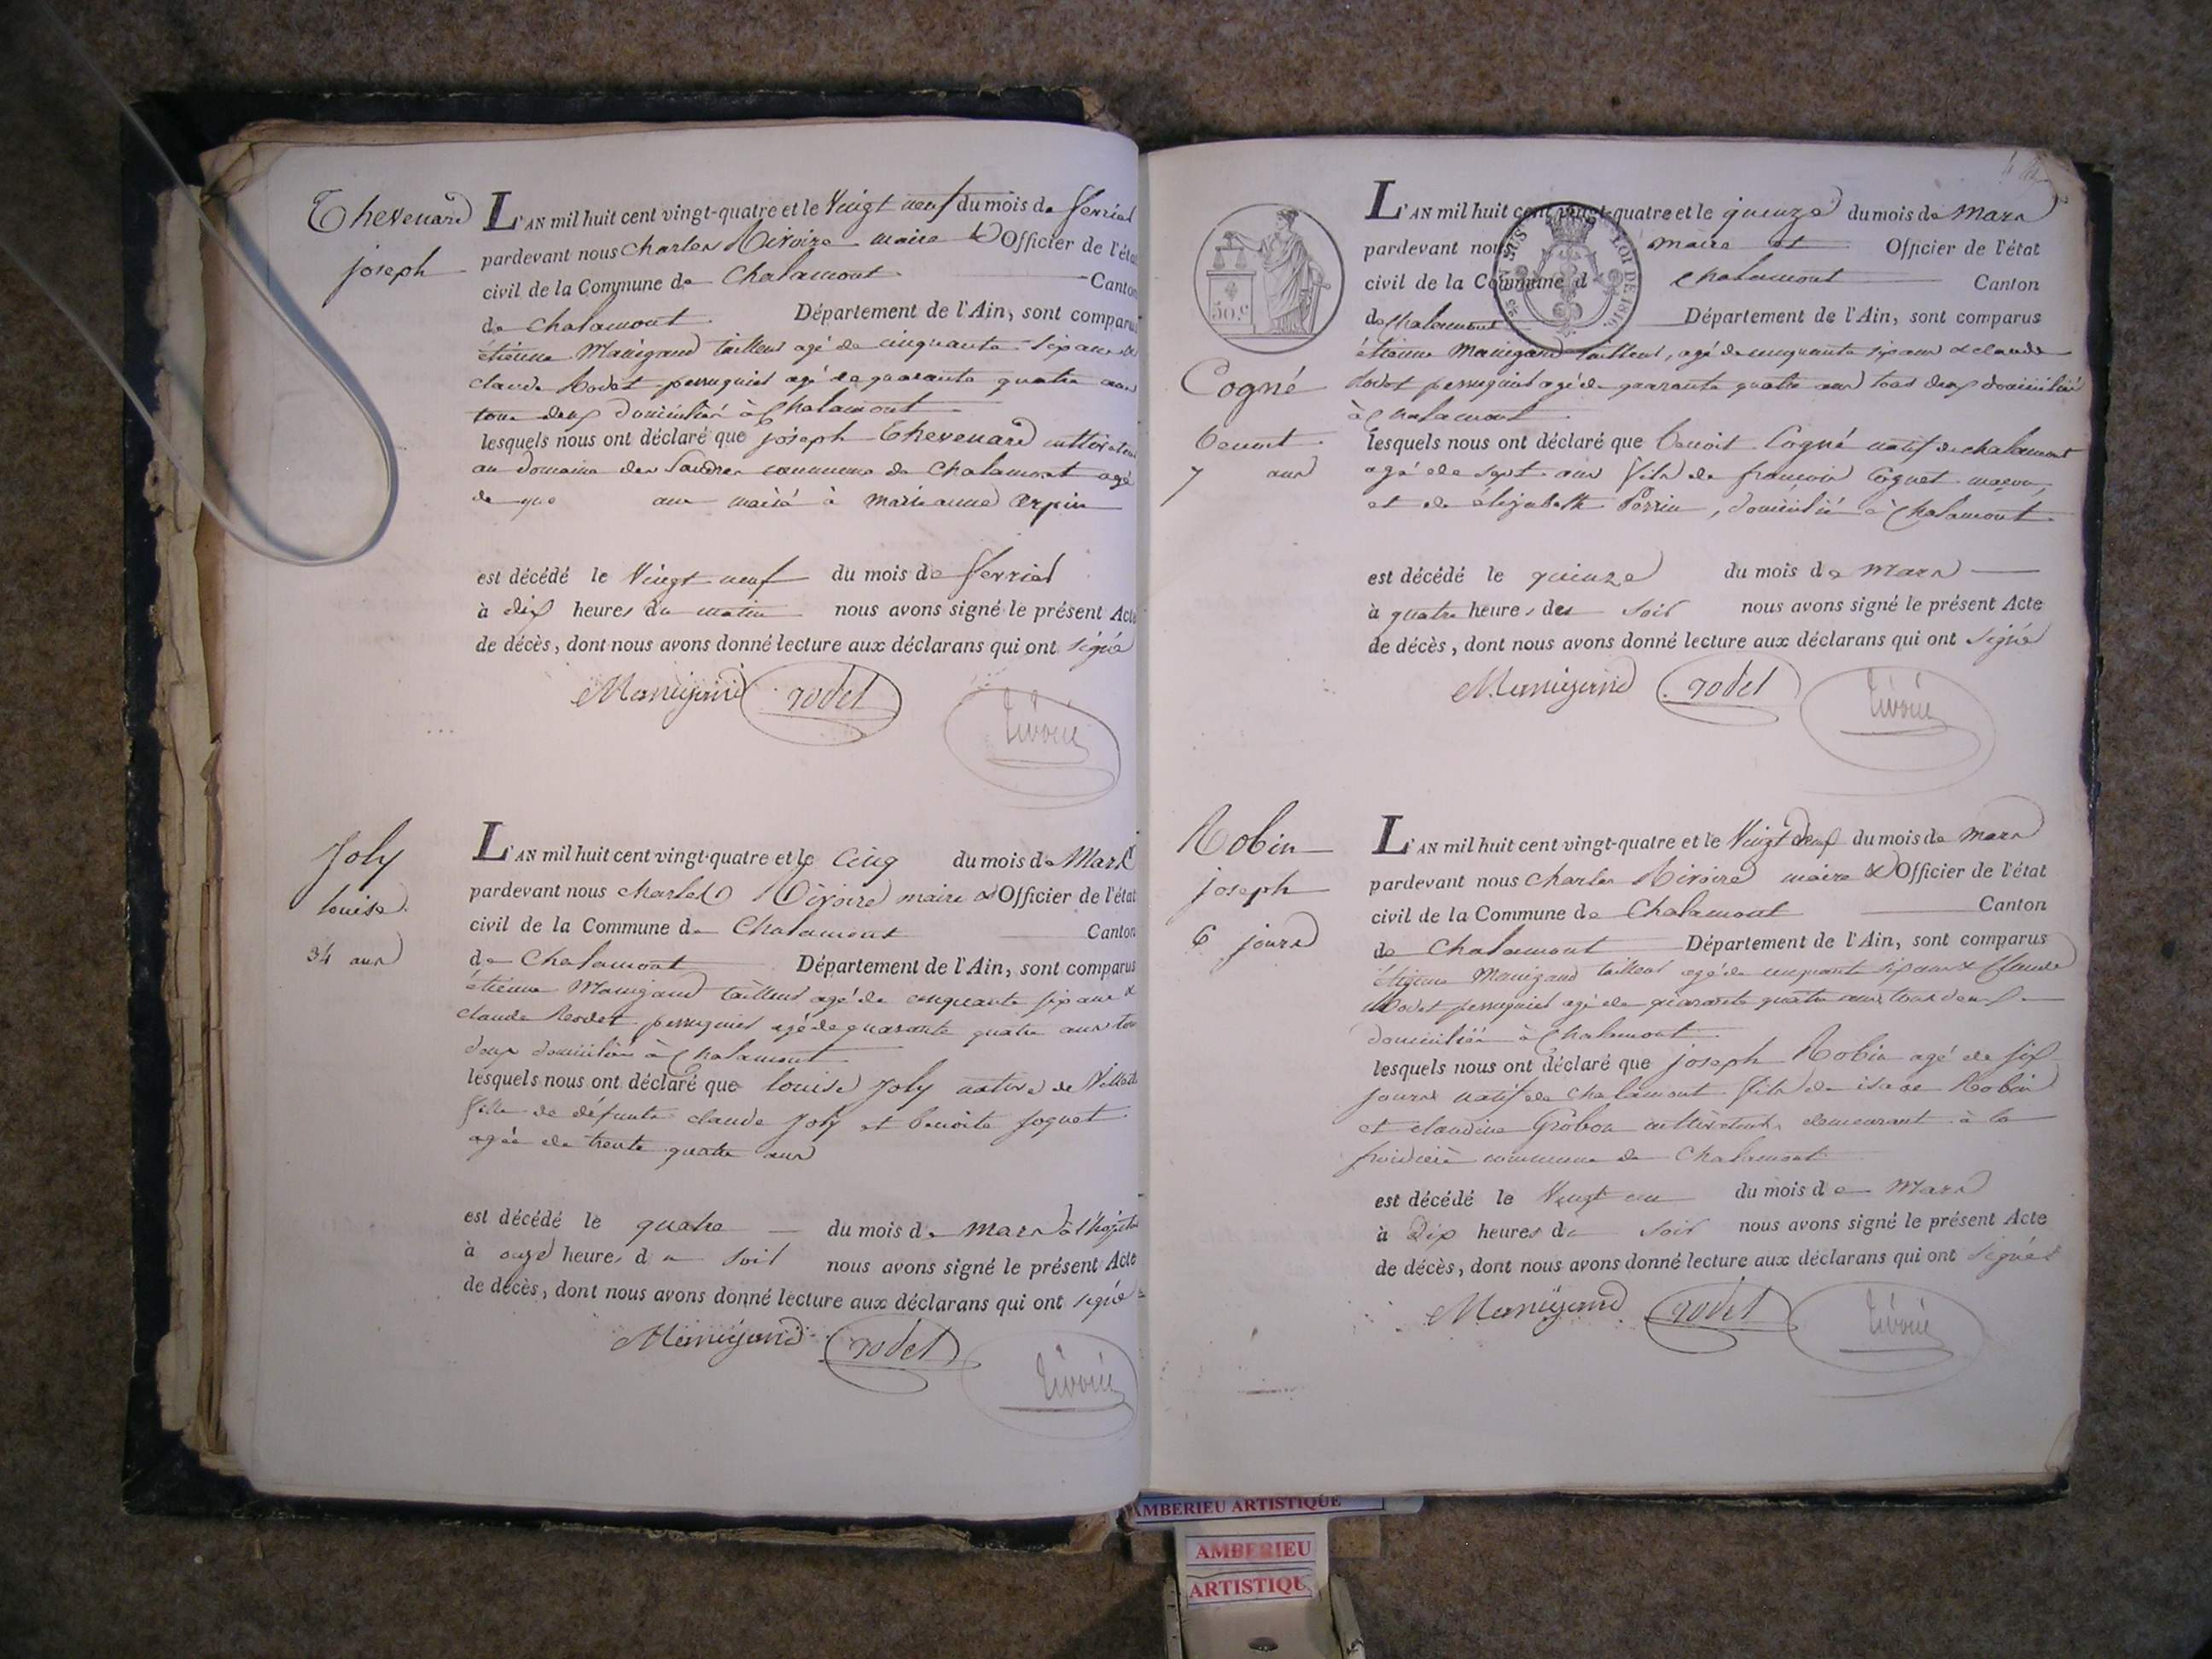 Thevenard
joseph
L'AN mil huit cent vingt-quatre et le Vingt neuf du mois de fevrier
pardevant nous Charles Rivoire maire & Officier de l'état
civil de la Commune de Chalamont Canton
de Chalamont Département de l'Ain, sont comparus
étienne Manigand tailleur agé de cinquante six ans &
claude Rodet perruquier agé de quarante quatre ans
tous deux domiciliés à Chalamont
lesquels nous ont déclaré que joseph Thevenard cultivateur
au domaine des commune de Chalamont agé
de ans marié à marie anne
est décédé le Vingt neuf du mois de fevrier
à dix heures du matin nous avons signé le présent Acte
de décès, dont nous avons donné lecture aux déclarans qui ont signé
Manigand rodet rivoire
Joly
louise
34 ans
L'AN mil huit cent vingt-quatre et le Cinq du mois de Mars
pardevant nous charles Rivoire maire & Officier de l'état
civil de la Commune de Chalamont Canton
de Chalamont Département de l'Ain, sont comparus
étienne Manigand tailleur agé de cinquante six ans &
claude Rodet perruquier agé de quarante quatre ans tous
deux domiciliés à Chalamont
lesquels nous ont déclaré que louise Joly native de
fille de défunts claude Joly et benoite
agée de trente quatre ans
est décédé le quatre du mois de mars à l'hôpital
à onze heures du soir nous avons signé le présent Acte
de décès, dont nous avons donné lecture aux déclarans qui ont signé
Manigand rodet rivoire
50 c
LOI DE 1816.
Cogné
benoit
7 ans
L'AN mil huit cent vingt-quatre et le quinze du mois de mars
pardevant nous maire et Officier de l'état
civil de la Commune d chalamont Canton
de Chalamont Département de l'Ain, sont comparus
étienne Manigand tailleur, agé de cinquante six ans & claude
Rodet perruquier agé de quarante quatre ans tous deux domiciliés
à Chalamont
lesquels nous ont déclaré que benoit Cogné natif de chalamont
agé de sept ans fils de françois Cognet maçon,
et de élizabeth Perrin, domicilié à Chalamont
est décédé le quinze du mois de mars
à quatre heures du soir nous avons signé le présent Acte
de décès, dont nous avons donné lecture aux déclarans qui ont signé
Manigand rodet rivoire
Robin
joseph
6 jours
L'AN mil huit cent vingt-quatre et le Vingt deux du mois de mars
pardevant nous Charles Rivoire maire & Officier de l'état
civil de la Commune de Chalamont Canton
de Chalamont Département de l'Ain, sont comparus
étienne Manigand tailleur agé de cinquante six ans & Claude
Rodet perruquier agé de quarante quatre ans tous deux
domiciliés à Chalamont
lesquels nous ont déclaré que joseph Robin agé de six
jours natif de Chalamont fils de isaac Robin
et claudine Grobon cultivateurs demeurant à la
commune de Chalamont
est décédé le Vingt un du mois de mars
à dix heures du soir nous avons signé le présent Acte
de décès, dont nous avons donné lecture aux déclarans qui ont signés
Manigand rodet rivoire
AMBERIEU ARTISTIQUE
AMBERIEU
ARTISTIQU